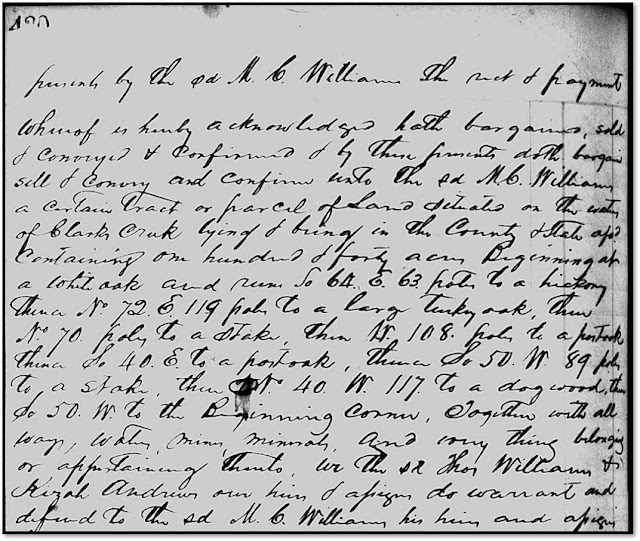 420
presents by the sd M. C. Williams the rect & payment
whereof is hereby acknowledged hath bargained, sold
& conveyed & confirmed & by these presents doth bargain
sell & convey and confirm unto the sd M. C. Williams
a certain tract or parcel of Land situated on the waters
of Clarks Creek lying & being in the County & State afsd
Containing one hundred & forty acres Beginning at
a white oak and runs So 64. E. 63 poles to a hickory
thence No. 72. E. 119 poles to a large turkey oak, then
No. 70. poles to a stake, then W. 108. poles to a post oak
thence So 40. E. to a post oak, thence So 50. W. 89 poles
to a stake, then No. 40. W. 117. to a dogwood, then
So 50. W. to the Beginning Corner, Together with all
ways, water, mines, minerals, and every thing belonging
or appertaining thereto, we the sd Thos Williams &
Kizah Andrews our heirs & assigns do warrant and
defend to the sd M. C. Williams his heirs and assigns